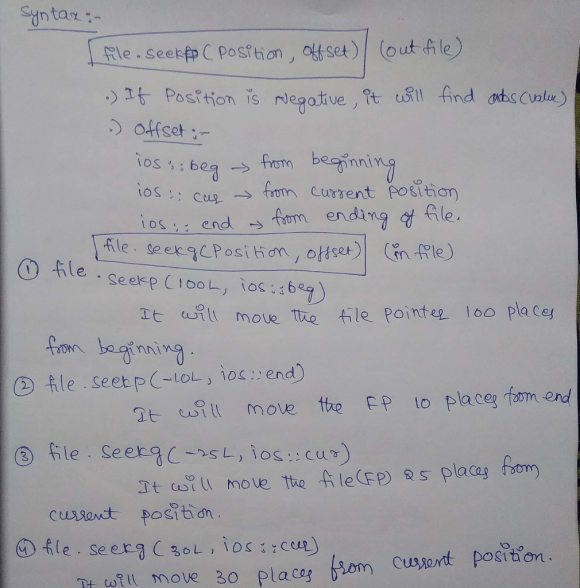 Syntax:-
file.seekp(Position, offset) (out file)
.) If Position is Negative, it will find abs(value)
.) Offset:-
ios::beg → from beginning
ios:: cur → from current position
ios:: end → from ending of file.
file. seekg(Position, offset) (in file)
① file . seekp (100L, ios::beg)
It will move the file pointer 100 places
from beginning.
② file. seekp(-10L, ios::end)
It will move the FP 10 places from end
③ file. seekg(-25L, ios::cur)
It will move the file(FP) 25 places from
current position.
④ file. seekg (30L, ios::cur)
It will move 30 places from current position.